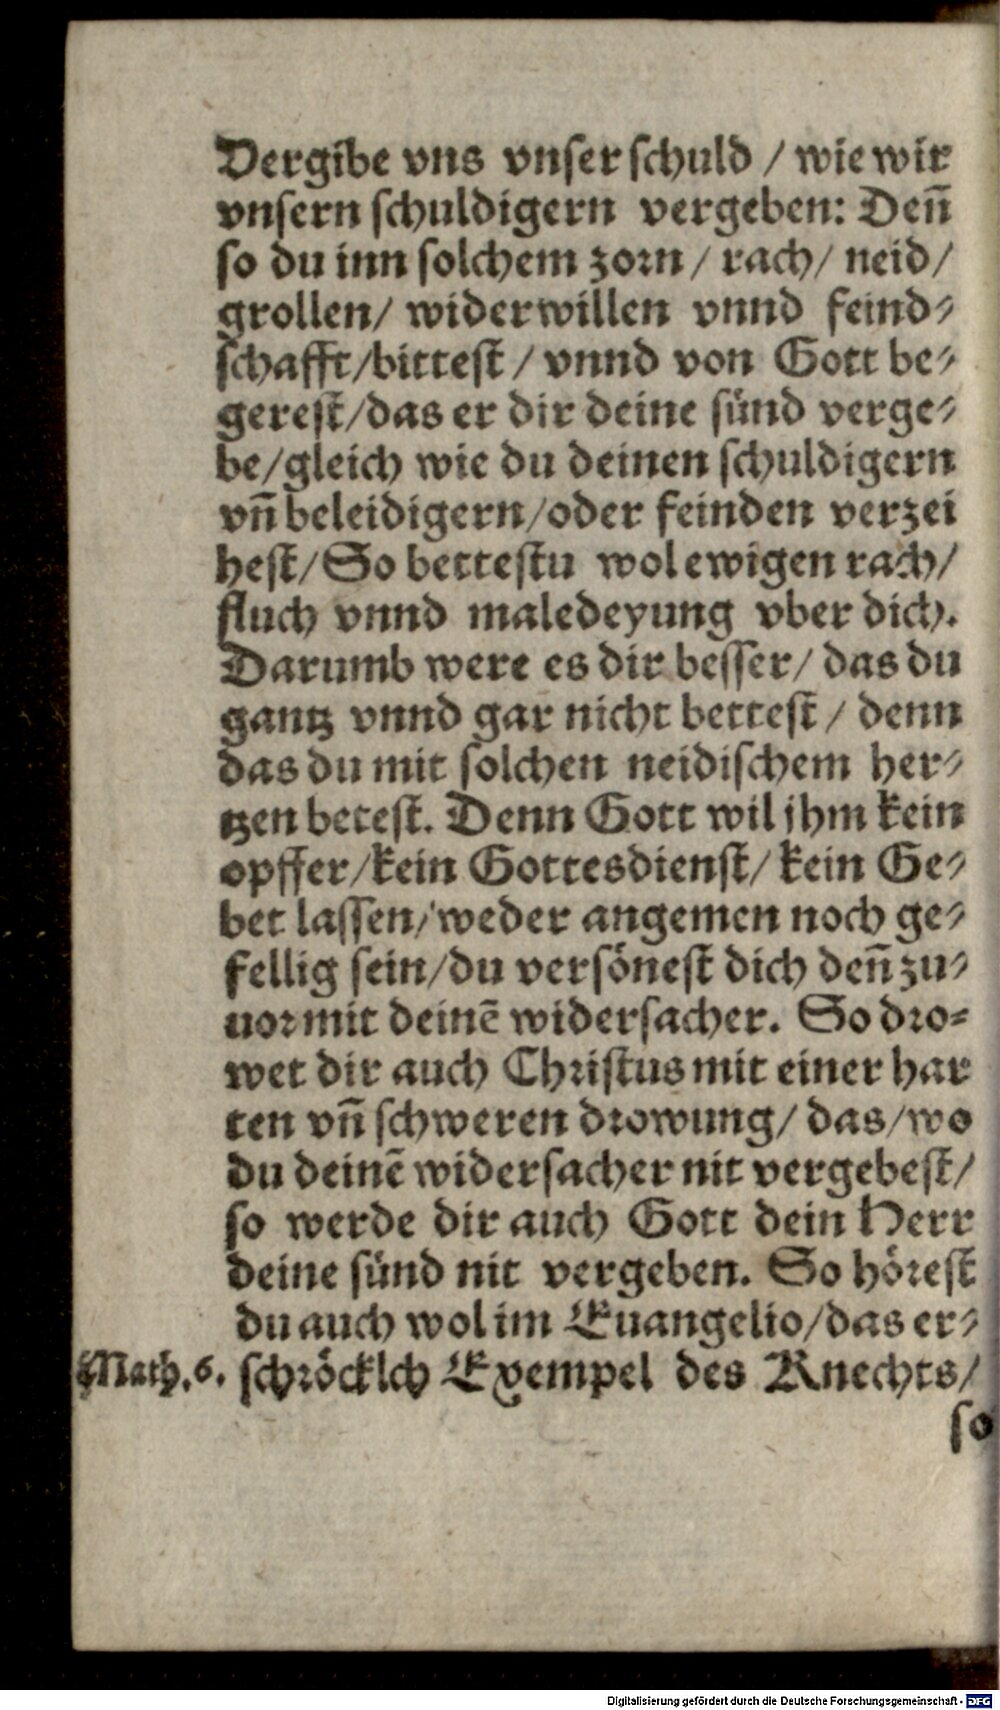 Vergibe vns vnser schuld / wie wir
vnsern schuldigern vergeben: Deñ
so du inn solchem zorn / rach / neid /
grollen / widerwillen vnnd feind-
schafft / bittest / vnnd von Gott be-
gerest / das er dir deine sünd verge-
be / gleich wie du deinen schuldigern
vñ beleidigern / oder feinden verzei
hest / So bettestu wol ewigen rach /
fluch vnnd maledeyung vber dich.
Darumb were es dir besser / das du
gantz vnnd gar nicht bettest / denn
das du mit solchen neidischem her-
tzen betest. Denn Gott wil jhm kein
opffer / kein Gottesdienst / kein Ge-
bet lassen / weder angemen noch ge-
fellig sein / du versönest dich deñ zu-
uor mit deinē widersacher. So dro-
wet dir auch Christus mit einer har
ten vñ schweren drowung / das / wo
du deinē widersacher nit vergebest /
so werde dir auch Gott dein Herr
deine sünd nit vergeben. So hörest
du auch wol im Euangelio / das er-
Math. 6. schröcklch Exempel des Knechts /
so
Digitalisierung gefördert durch die Deutsche Forschungsgemeinschaft - DFG